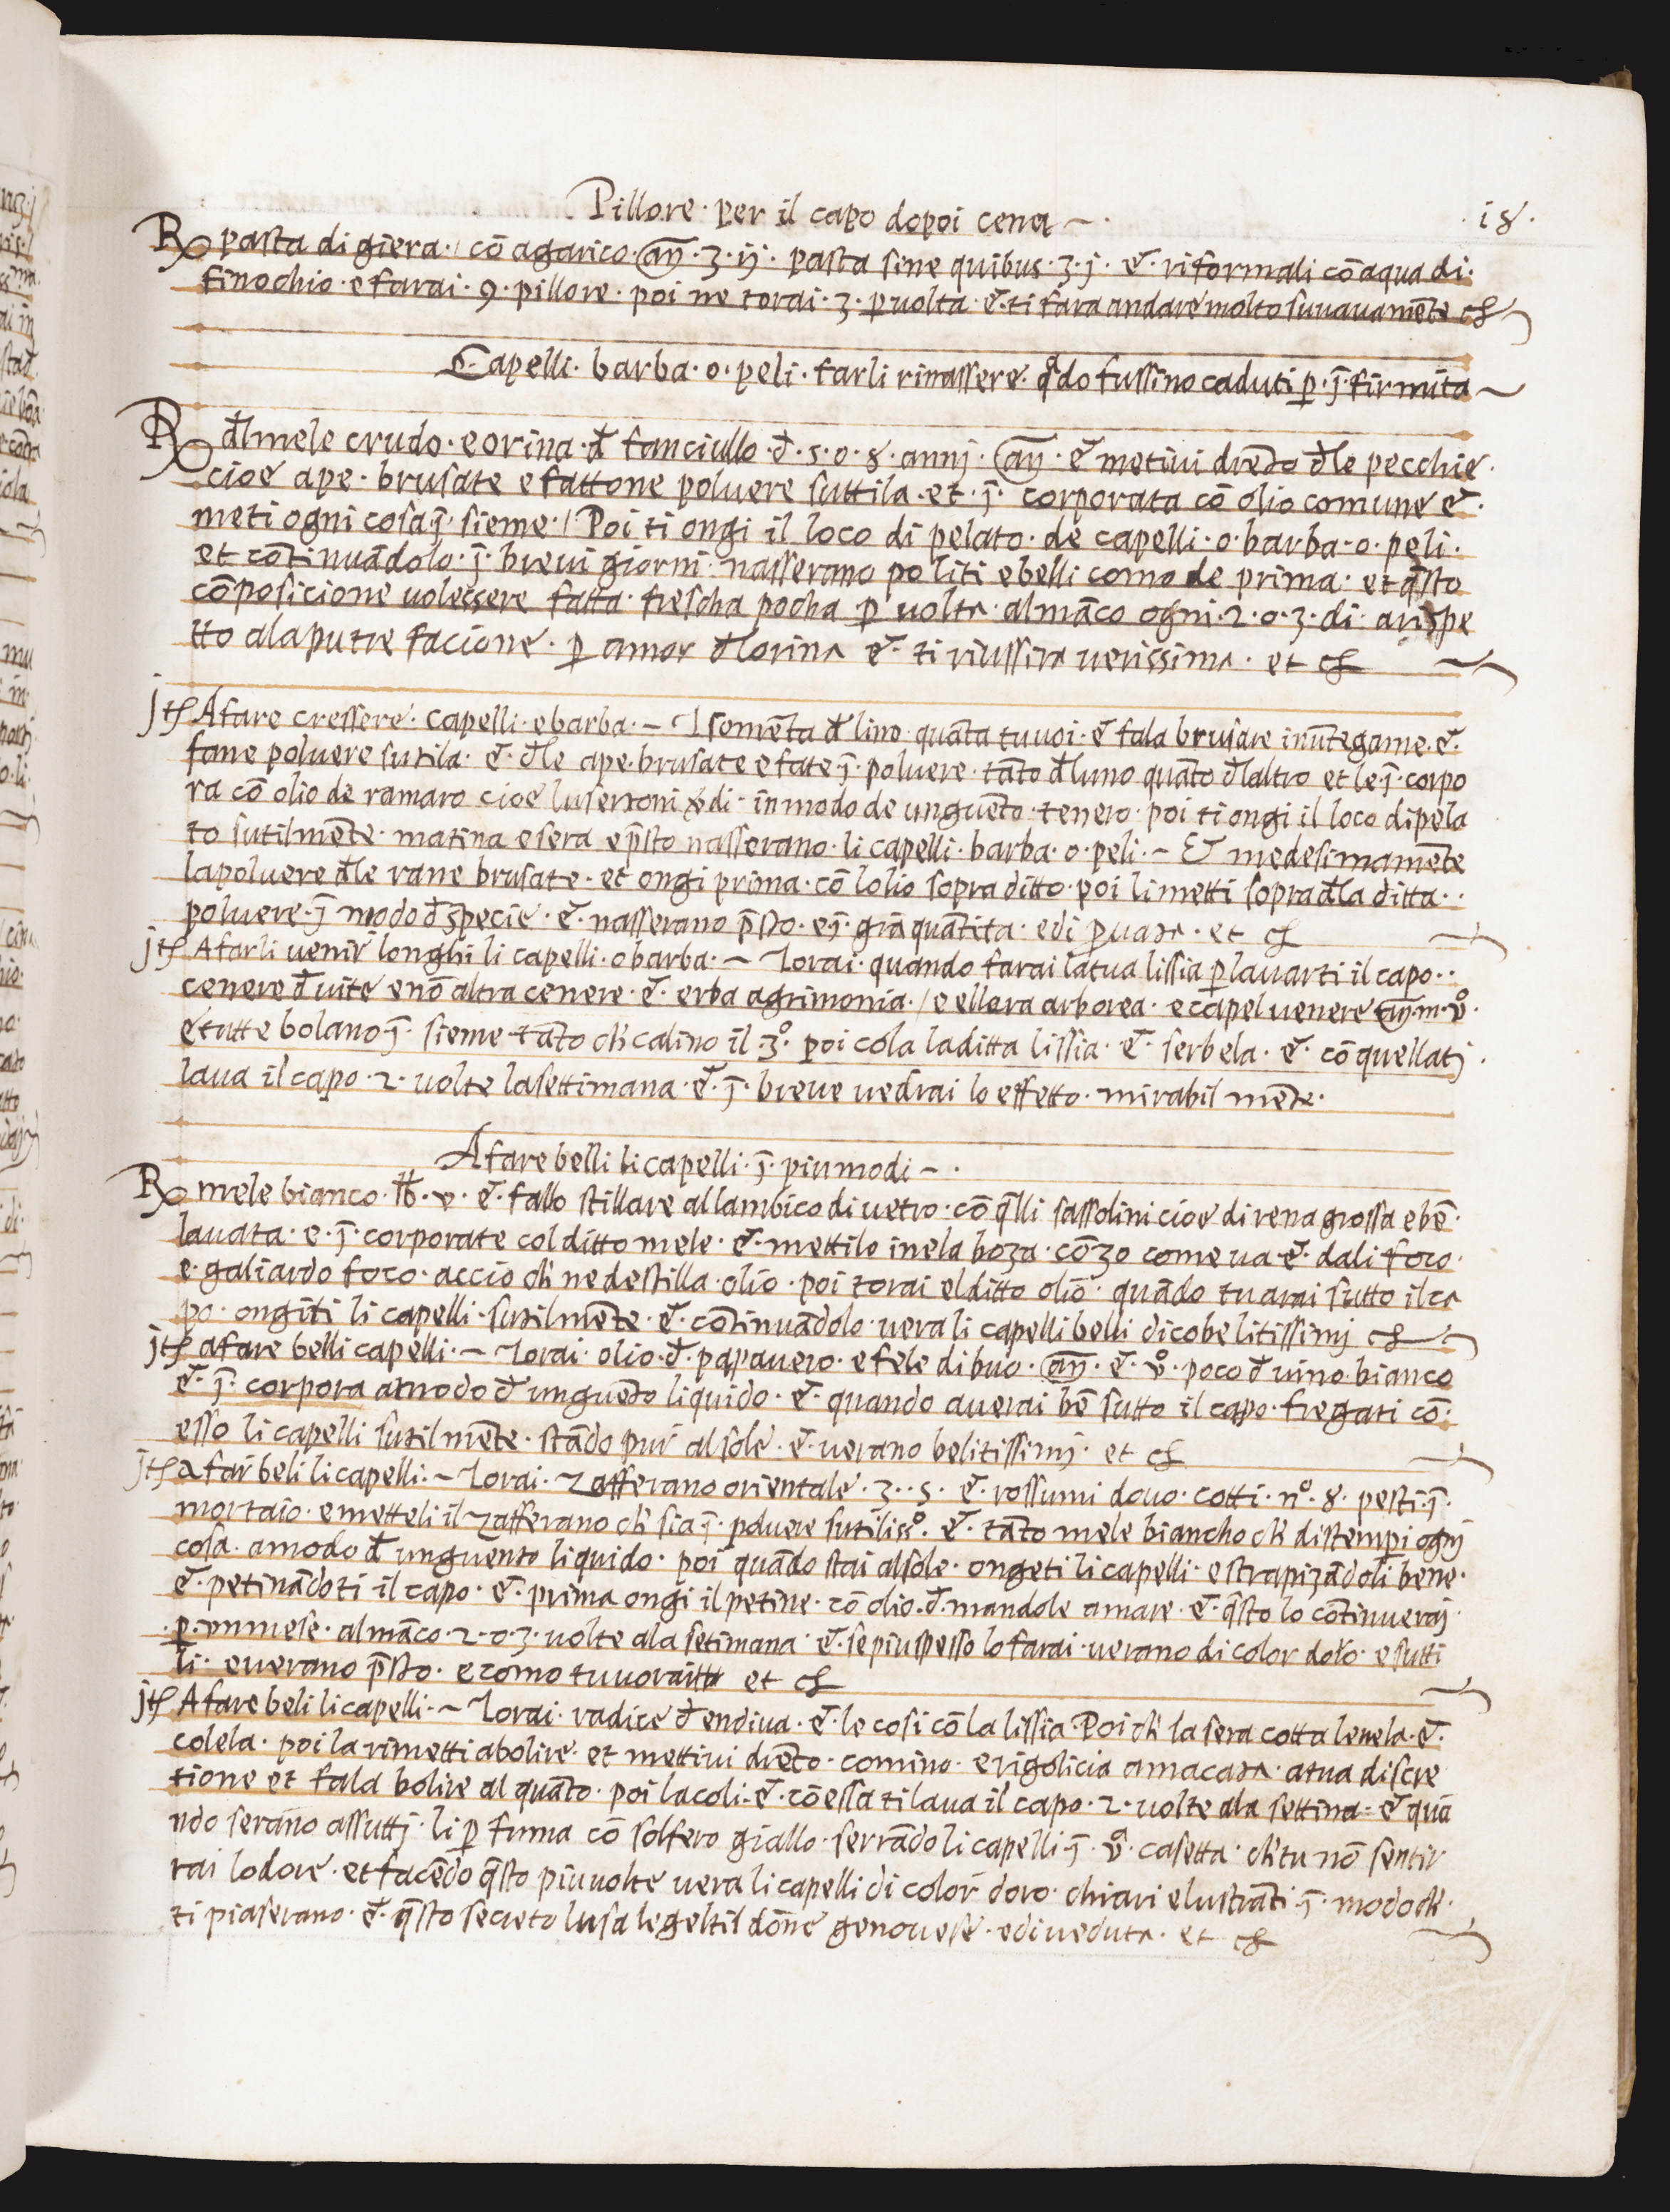 Pillore · per il capo dopoi cena ~ ·
· 18 ·
℞ pasta di giera · / cō agarico · aṅ · ʒ · ij · pasta sine quibus · ʒ · j · e · riformali cō aqua di ·
finochio · e farai · 9 · pillore · poi ne torai · 3 · p uolta · e · ti fara andare molto suuauamēte
Capelli · barba · o · peli · farli rinassere · qdo fussino caduti p · j̄ · firmita ~
℞ đl mele crudo · e orina · đ fanciullo · đ · 5 · o · 8 · annj · aṅ · e metiui drēto đle pecchie ·
cioe ape · brusate e fattone poluere suttila · et · j̄ · corporata cō olio comune e ·
meti ogni cosa j̄ · sieme · / Poi ti ongi il loco di pelato · de capelli · o · barba · o · peli ·
et cōtinuādolo · j̄ · breui giorni · nasserano politi e belli como de prima · et q̄sto
cōposicione uolessere fatta frescha pocha p uolta · al māco ogni · 2 · o · 3 · di · arispe
tto ala putrefacione · p amor đ lorina e · ti riussira uerissima · et
jt A fare cressere · capelli · e barba · ~ somēta đ lino · quāta tu uoi · e fala brusare in ūtegame · e ·
fane poluere sutila · e · đle ape · brusate e fate j̄ · poluere · tāto đluno quāto đlaltro et le j̄ · corpo
ra cō olio de ramaro cioe lusertoni ꝟdi · in modo de unguēto · tenero · poi ti ongi il loco dipela
to sutilmēte · matina e sera e p̄sto nasserano · li capelli · barba · o · peli · ~ Et medesimamēte
la poluere đle rane brusate · et ongi prima · cō lolio sopra ditto · poi li metti sopra đla ditta · ·
poluere · j̄ modo đ specie · e · nasserano p̄sto · e j̄ · grā quātita · e di puata · et
jt A farli uenir longhi li capelli · o barba · ~ Torai · quando farai la tua lissia p lauarti il capo · ·
cenere đ uite e nō altra cenere · e · erba agrimonia · / e ellera arborea · e capel uenere aṅ m · v̊ ·
e tutte bolano j̄ · sieme tāto ch calino il · 3° · poi cola la ditta lissia · e · serbela · e · cō quella tj ·
laua il capo · 2 · uolte la settimana · e · j̄ · breue uedrai lo effetto · mirabil mēte ·
A fare belli li capelli · j̄ · piu modi ~ ·
℞ mele bianco · ℔ · v · e · fallo stillare al lambico di uetro · cō q̄lli sassolini cioe di rena grossa e bē ·
lauata · e · j̄ · corporate col ditto mele · e · mettilo in ela boza · cō zo come ua · e · dali foco ·
e · galiardo foco · accio ch ne destilla · olio · poi torai el ditto olio · quādo tu arai sutto il ca
po · ongiti li capelli · sutilmēte · e · cōtinuādolo · uera li capelli belli dicobelitissimj
jt a fare belli capelli · ~ Torai · olio · đ · papauero · e fele di buo · aṅ · e · v̊ · poco đ uino bianco
e · j̄ · corpora a modo đ unguēto liquido · e · quando auerai bē sutto il capo · fregati cō ·
esso li capelli sutilmēte · stādo pur al sole · e · uerano belitissimj · et
jt a far beli li capelli · ~ Torai · zafferano orientale · ʒ · 5 · e · rossumi douo · cotti · n° · 8 · pesti · j̄ ·
mortaio · e metteli il zafferano ch sia j̄ · poluere sutiliss° · e · tāto mele biancho ch distempi ognj
cosa · a modo đ unguento liquido · poi quādo stai al sole · ongeti li capelli · e strapizādoli bene ·
e · petinādoti il capo · e · prima ongi il petine · cō olio · đ · mandole amare · e · q̄sto lo cōtinuerai
· p · un mese · al māco · 2 · o · 3 · uolte ala setimana · e · se piu spesso lo farai · uerano di color doro · e sutti
li · e uerano p̄sto · e como tu uorai et
jt A fare beli li capelli · ~ Torai · radice đ endiua · e · le cosi cō la lissia · Poi ch la sera cotta leuela · e ·
colela · poi la rimetti a bolire · et mettiui drēto · comino · e rigolicia amacata · a tua discre
tione et fala bolire al quāto · poi la coli · e · cō essa ti laua il capo · 2 · uolte ala settina · e quā
ndo serāno assuttj · li p fuma cō solfero giallo · serrādo li capelli j̄ · v̊ · casetta · ch tu nō sentir
rai lodore · et facēdo q̄sto piu uolte uera li capelli di color doro · chiari e lustrāti · j̄ · modo ch ·
ti piaserano · e · q̄sto secreto lusa le geltil dōne genouese · e di ueduta · et